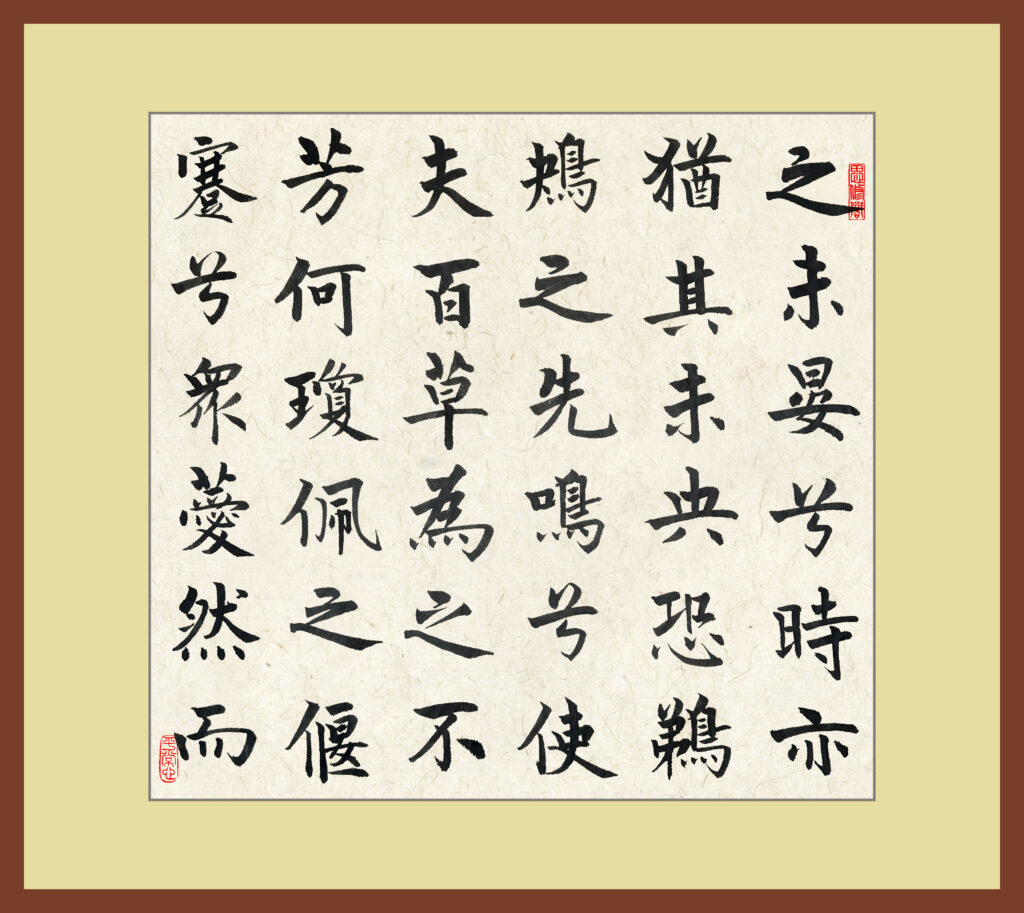 思修閣
之未晏兮時亦
猶其未央恐鵜
鴂之先鳴兮使
夫百草為之不
芳何瓊佩之偃
蹇兮衆薆然而
平常心